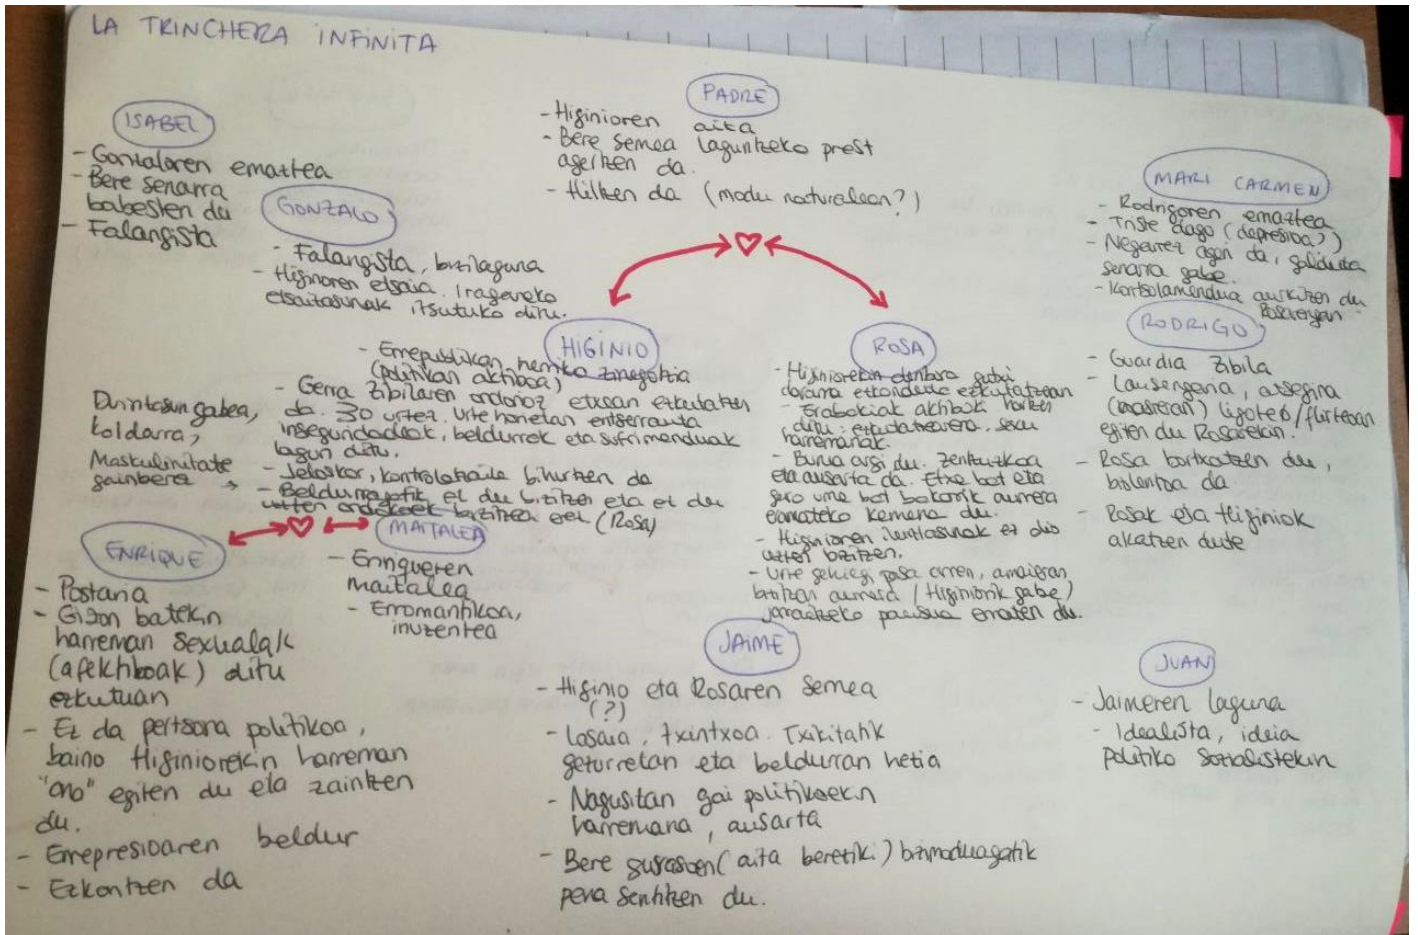 LA TRINCHERA INFINITA
ISABEL
- Gonzaloren emaztea
- Bere senarra
babesten du
- Falangista
GONZALO
- Falangista, bizilaguna
- Higinoren etsaia. Iraganeko
etsaitasunak itsutuko ditu.
PADRE
- Higinioren aita
- Bere semea laguntzeko prest
agertzen da.
- Hiltzen da (modu naturalean?)
MARI CARMEN
- Rodrigoren emaztea
- Triste dago (depresioa?)
- Negarrez ageri da, galduta
senarra gabe.
- Kontsolamendua aurkitzen du
Rosarengan
RODRIGO
- Guardia Zibila
- Lausengaria, atsegina
(hasieran) ligoteo/flirtean
egiten du Rosarekin.
- Rosa bortxatzen du,
biolentoa da.
- Rosak eta Higiniok
akatzen dute
HIGINIO
- Errepublikan herriko zinegotzia
(politikan aktiboa)
- Gerra Zibilaren ondorioz etxean ezkutatzen
da. 30 urtez. Urte horietan entserrauta
inseguridadeak, beldurrak eta sufrimenduak
lagun ditu.
- Jeloskor, kontrolatzaile bihurtzen da
- Beldurragatik ez du bizitzen eta ez du
uzten ondokoek bizitzea ere (Rosa)
Duintasun gabea,
koldarra,
Maskulinitate
gainbera →
ROSA
- Higiniorekin denbora gutxi
darama ezkonduta ezkutatzean
- Erabakiak aktiboki hartzen
ditu: ezkutatzearena, sexu
harremanak.
- Burua argi du. Zentzuzkoa
eta ausarta da. Etxe bat eta
gero ume bat bakarrik aurrera
eramateko kemena du.
- Higinioren ilentasunak ez dio
uzten bizitzen.
- Urte gehiegi pasa arren, amaieran
bizitzan aurrera (Higiniorik gabe)
jarraitzeko pausua ematen du.
ENRIQUE
- Postaria
- Gizon batekin
harreman sexualak
(afektiboak) ditu
ezkutuan
- Ez da pertsona politikoa,
baino Higiniorekin harreman
"ona" egiten du eta zaintzen
du.
- Errepresioaren beldur
- Ezkontzen da
MAITALEA
- Enriqueren
maitalea
- Erromantikoa,
inuzentea
JAIME
- Higinio eta Rosaren semea
(?)
- Lasaia, txintxoa. Txikitatik
gezurretan eta beldurran hezia
- Nagusitan gai politikoekin
harremana, ausarta
- Bere gurasoen (aita bereziki) bizimoduagatik
pena sentitzen du.
JUAN
- Jaimeren laguna
- Idealista, ideia
politiko sozialistekin